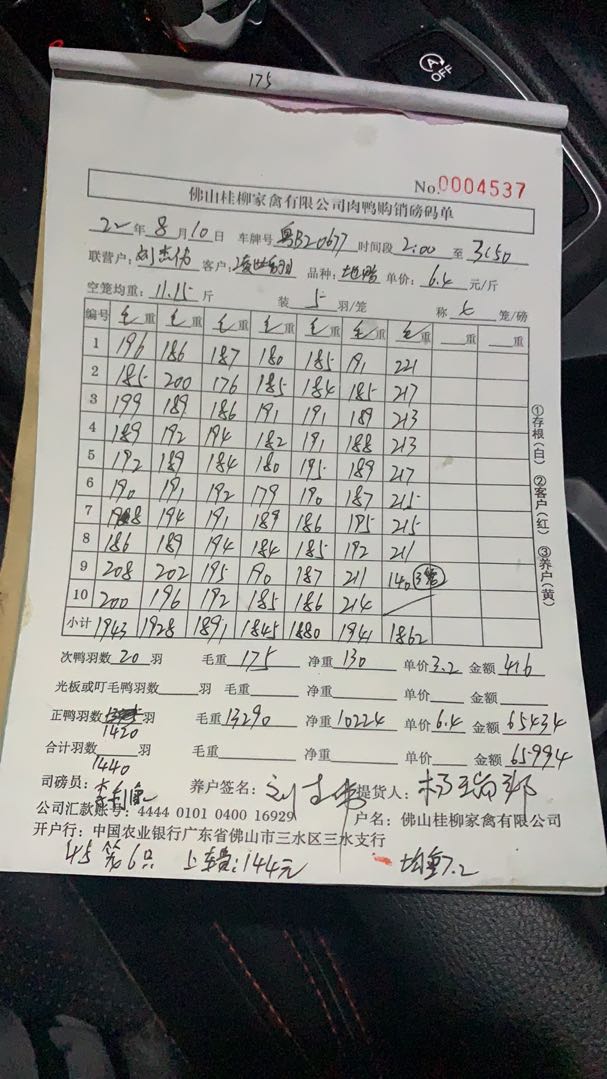 A OFF
175
No.0004537
佛山桂柳家禽有限公司肉鸭购销磅码单
22年8月10日 车牌号粤B20677时间段2:00至3:50
联营户: 客户: 品种: 单价:6.4元/斤
空笼均重:11.15斤 装5羽/笼 称七笼/磅
编号 毛重 毛重 毛重 毛重 毛重 毛重 毛重 重 重
1 196 186 187 180 185 191 221
2 185 200 176 185 184 185 217
3 199 189 186 191 191 189 213
4 189 192 194 182 191 188 213
5 192 189 184 180 195 189 217
6 190 191 192 179 190 187 215
7 198 194 191 189 186 195 215
8 186 189 194 184 185 192 211
9 208 202 195 190 187 211 140 3笼
10 200 196 192 185 186 214
小计 1943 1928 1891 1845 1880 1941 1862
①存根(白) ②客户(红) ③养户(黄)
次鸭羽数20羽 毛重175 净重130 单价3.2 金额416
光板或叮毛鸭羽数 羽 毛重 净重 单价 金额
正鸭羽数 羽 毛重13290 净重10224 单价6.4 金额65434
1420
合计羽数 羽 毛重 净重 单价 金额65994
1440
司磅员: 养户签名: 提货人:
公司汇款账号:4444 0101 0400 16929 户名:佛山桂柳家禽有限公司
开户行:中国农业银行广东省佛山市三水区三水支行
45笼6只 上车费:144元 均重7.2